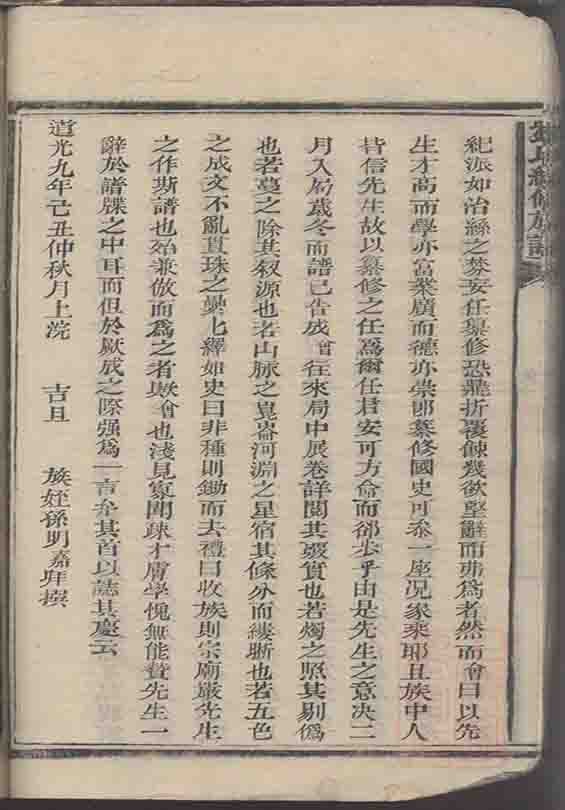 紀派如治絲之棼妄任纂修恐鼎折覆餗幾欲堅辭而弗為者然而會曰以先
生才高而學亦富業廣而德亦崇即纂修國史可叅一座況家乘耶且族中人
皆信先生故以纂修之任為爾任君安可方命而卻步乎由是先生之意决二
月入局歲冬而譜已告成會往來局中展卷詳閱其覈實也若燭之照其剔偽
也若蔓之除其叙源也若山脉之崑崙河淵之星宿其條分而縷晰也若五色
之成文不亂貫珠之纍七繹如史曰非種則鋤而去禮曰收族則宗廟嚴先生
之作斯譜也殆兼倣而為之者歟會也淺見寡聞疎才膚學愧無能贊先生一
辭於譜牒之中耳而但於厥成之際强為一言弁其首以誌其慶云
道光九年己丑仲秋月上浣 吉旦 族姪孫明嘉拜撰
氏續修族譜